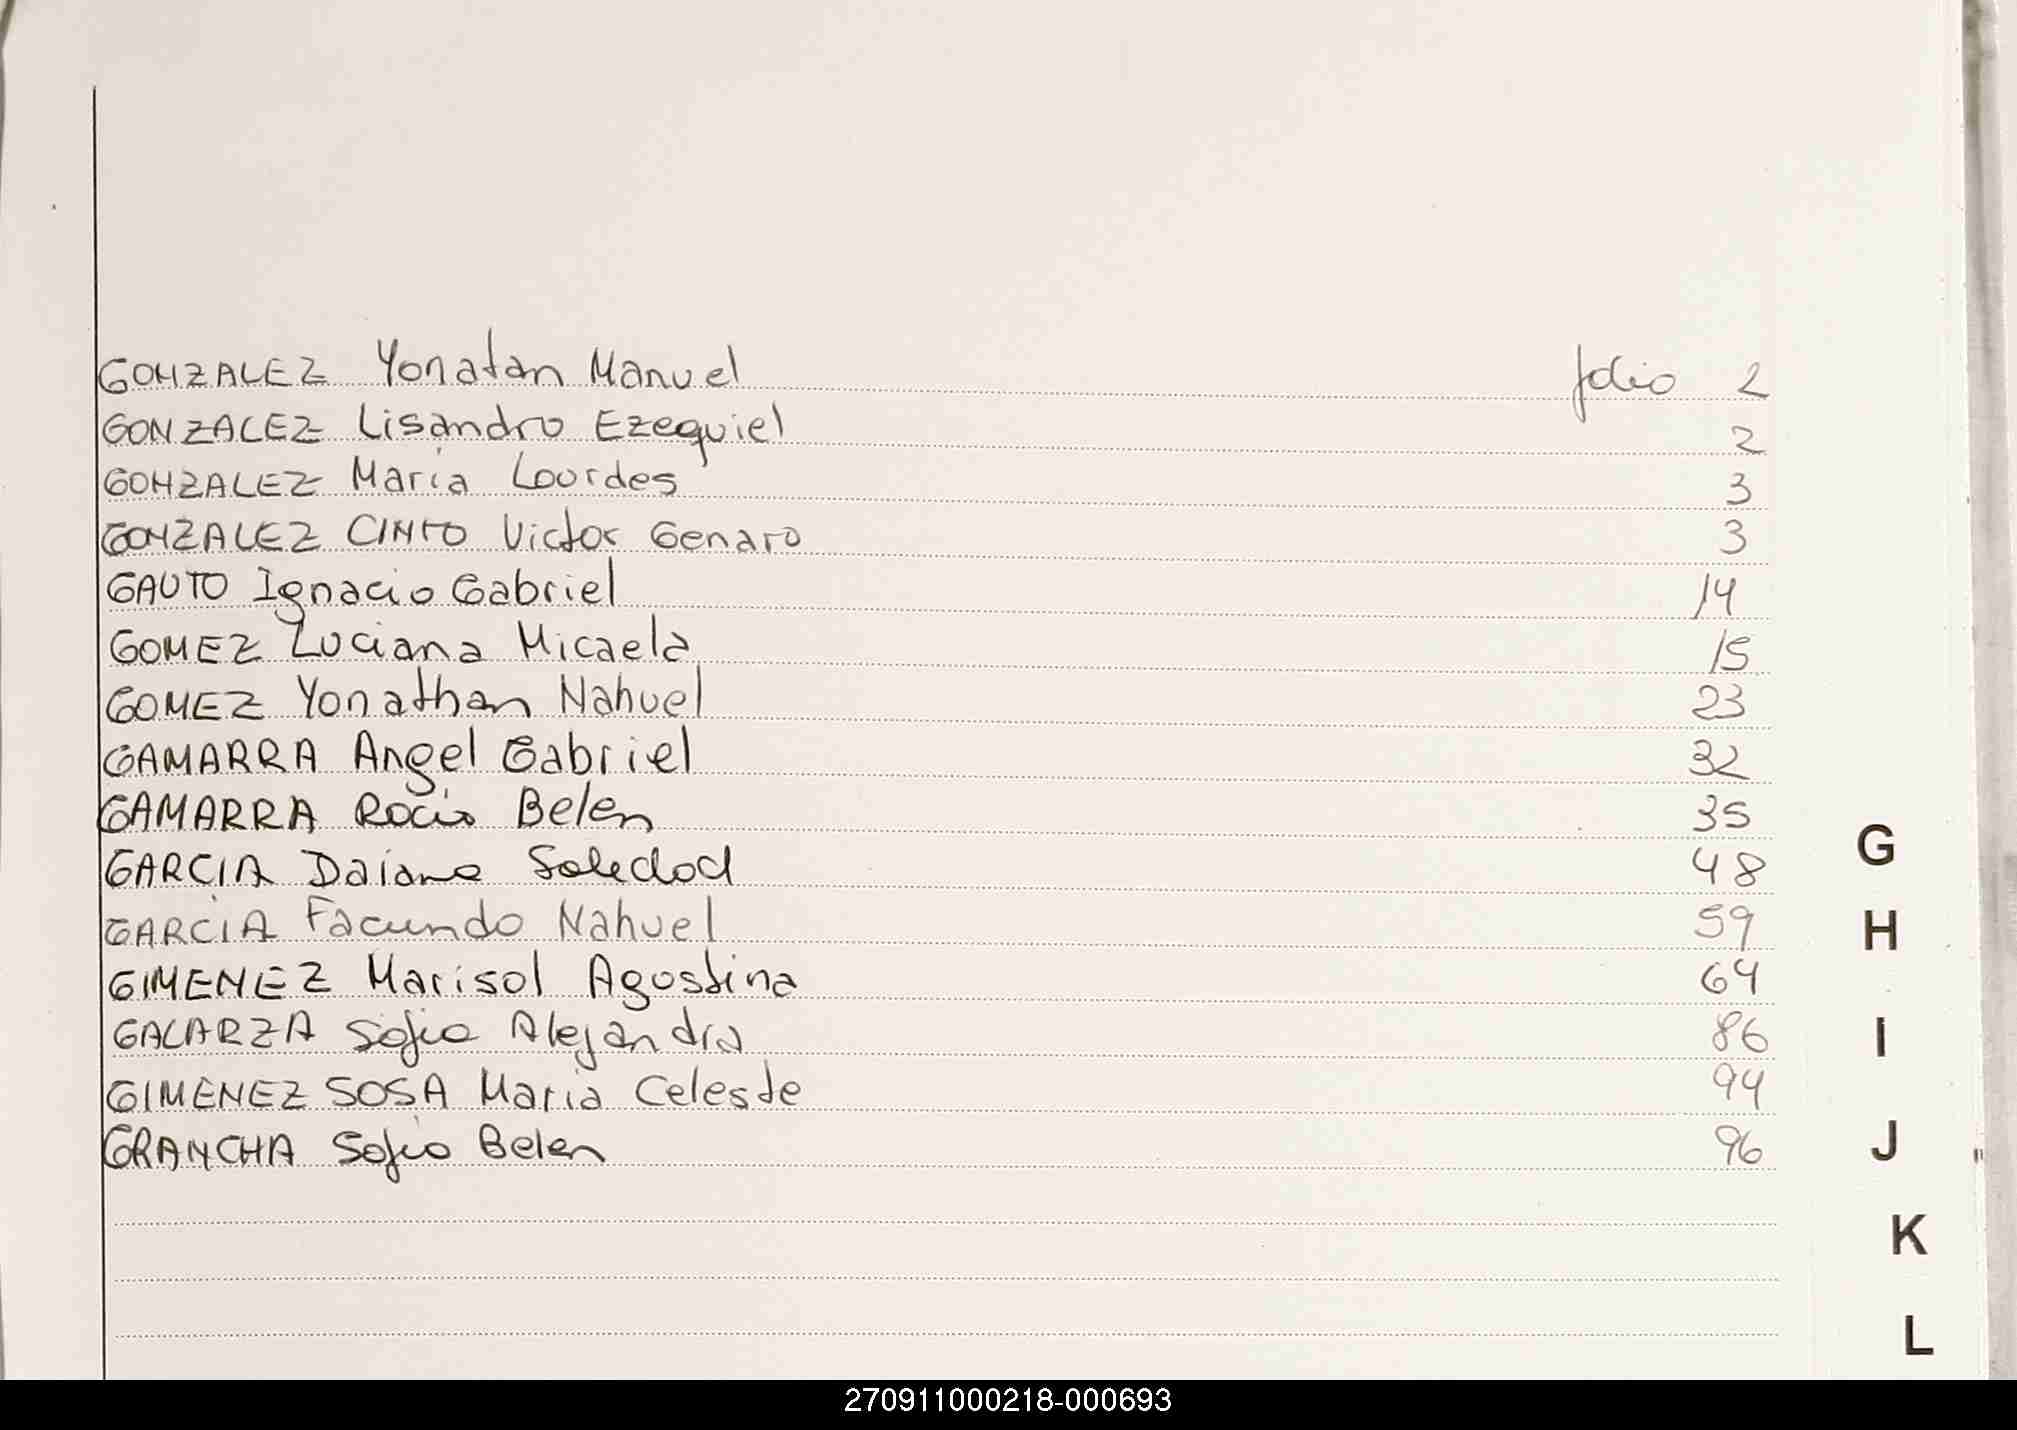 GONZALEZ Yonatan Manuel folio 2
GONZALEZ Lisandro Ezequiel 2
GONZALEZ Maria Lourdes 3
GONZALEZ CINTO Victor Genaro 3
GAUTO Ignacio Gabriel 14
GOMEZ Luciana Micaela 15
GOMEZ Yonathan Nahuel 23
GAMARRA Angel Gabriel 32
GAMARRA Rocio Belen 35
GARCIA Daiana Soledad 48
GARCIA Facundo Nahuel 59
GIMENEZ Marisol Agostina 64
GALARZA Sofia Alejandra 86
GIMENEZ SOSA Maria Celeste 94
GRANCHA Sofia Belen 96
G
H
I
J
K
L
270911000218-000693